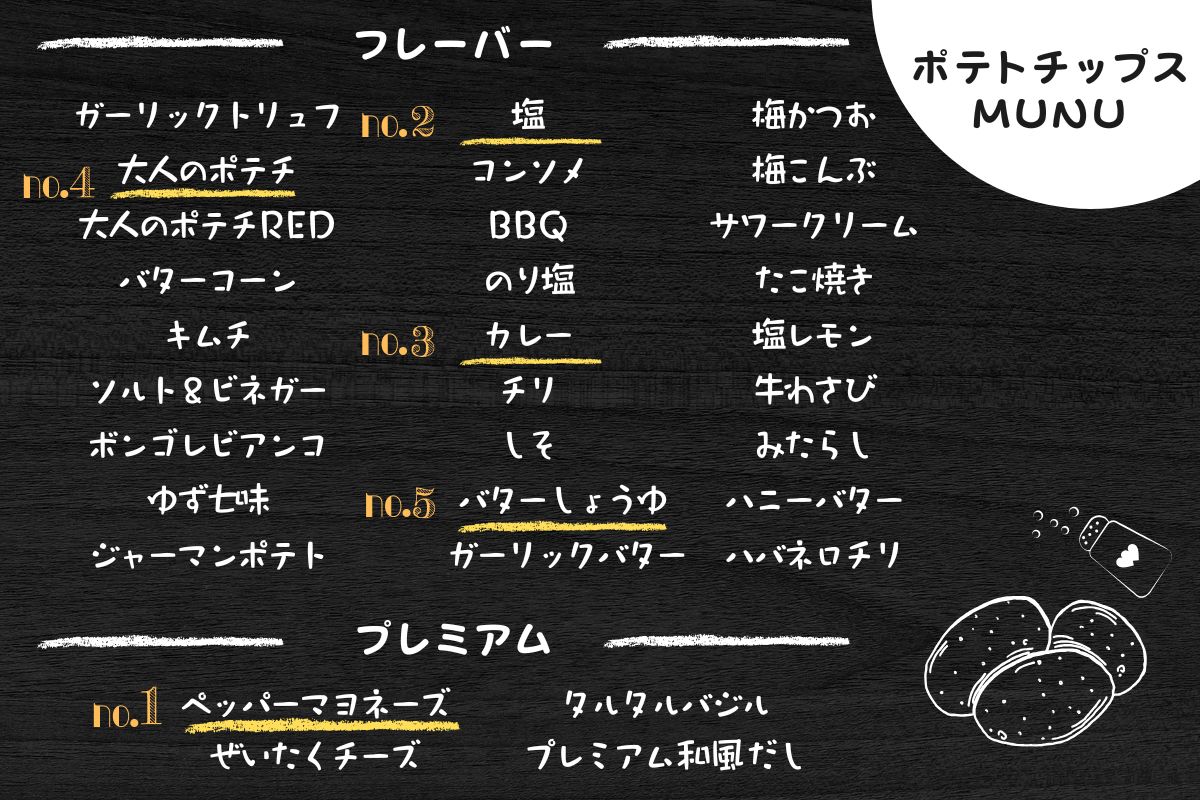 フレーバー
ポテトチップス
MUNU
ガーリックトリュフ no.2 塩 梅かつお
no.4 大人のポテチ コンソメ 梅こんぶ
大人のポテチRED BBQ サワークリーム
バターコーン のり塩 たこ焼き
キムチ no.3 カレー 塩レモン
ソルト&ビネガー チリ 牛わさび
ボンゴレビアンコ しそ みたらし
ゆず七味 no.5 バターしょうゆ ハニーバター
ジャーマンポテト ガーリックバター ハバネロチリ
プレミアム
no.1 ペッパーマヨネーズ タルタルバジル
ぜいたくチーズ プレミアム和風だし